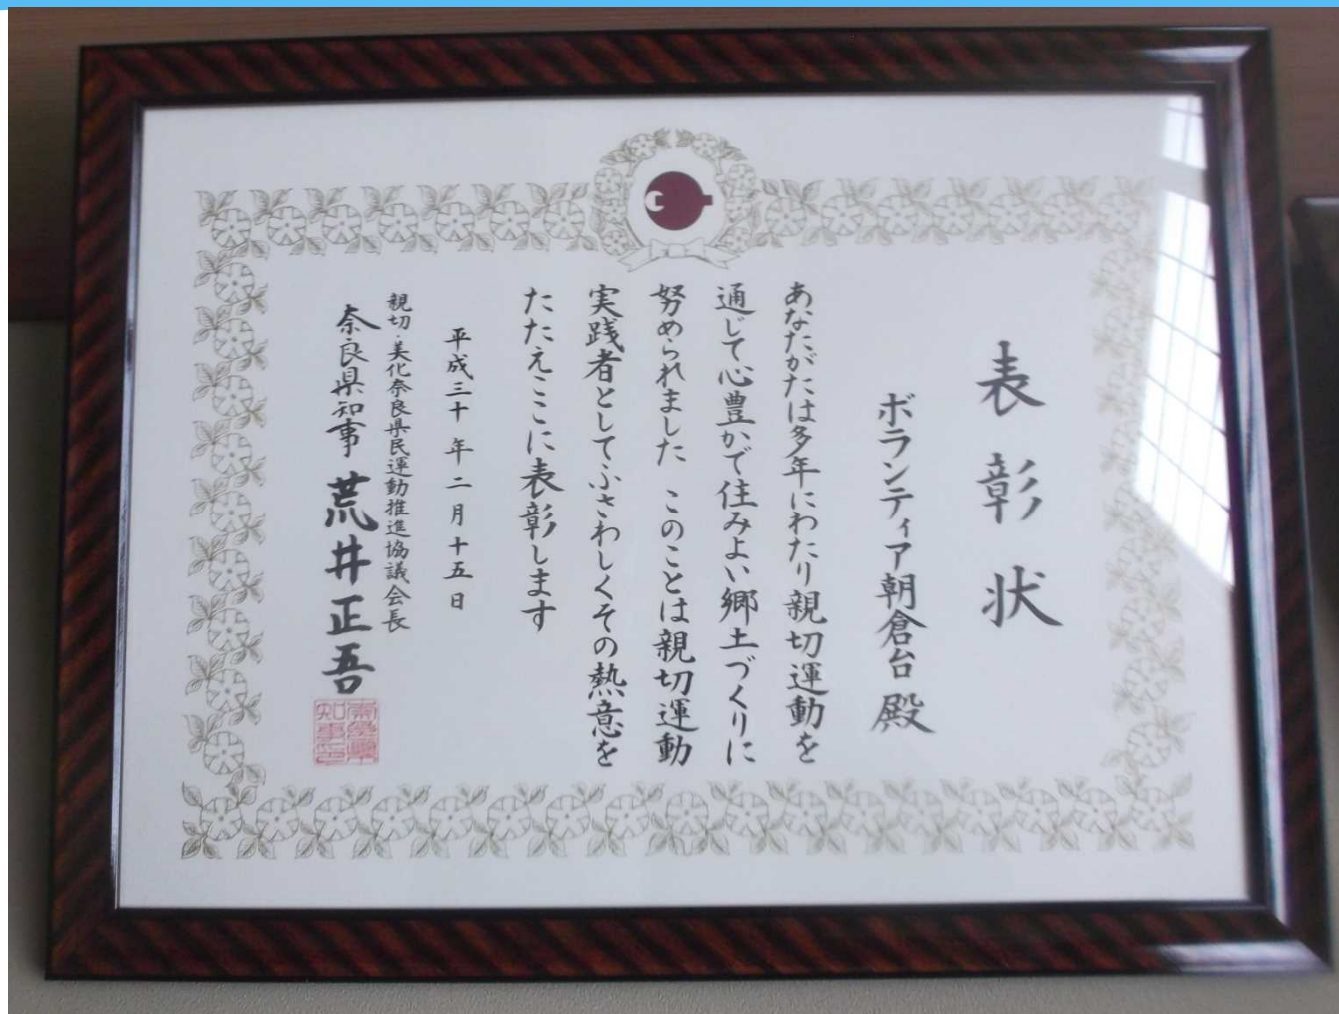 表彰状
ボランティア朝倉台 殿
あなたがたは多年にわたり親切運動を
通じて心豊かで住みよい郷土づくりに
努められました このことは親切運動
実践者としてふさわしくその熱意を
たたえここに表彰します
平成三十年二月十五日
親切・美化奈良県民運動推進協議会長
奈良県知事 荒井正吾
奈良県知事印